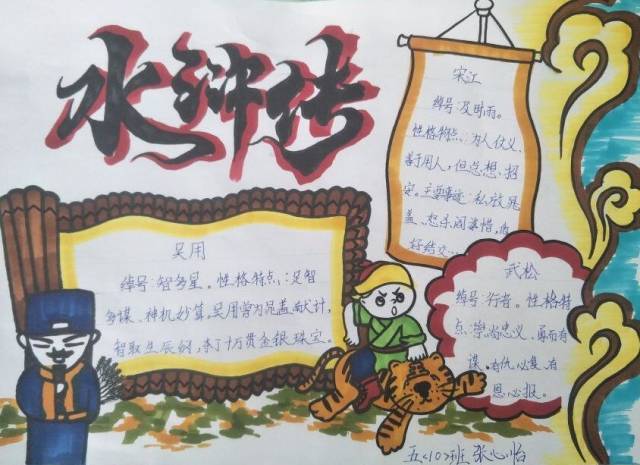 水浒传
宋江
绰号:及时雨。
性格特点:为人仗义、
善于用人,但总想招
安。主要事迹:私放晁
盖、怒杀阎婆惜,
好结交
吴用
绰号:智多星。性格特点:足智
多谋、神机妙算,吴用曾为晁盖献计,
智取生辰纲,
十万贯金银珠宝。
武松
绰号:行者。性格特
点:崇尚忠义、勇而有
谋、有仇必复、有
恩必报。
五<10>班 张心怡